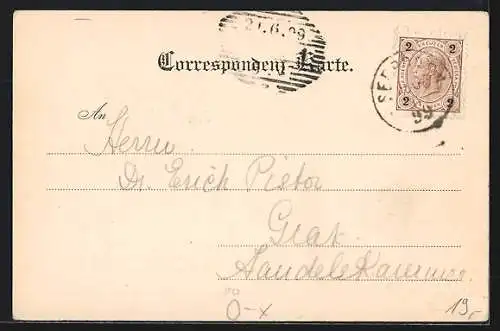 21.6.99
Correspondenz-Karte.
2 2
2 2
SEE
99
An
Herrn
Dr. Erich Pistor
Graz
Handelskammer
O-x
19,-